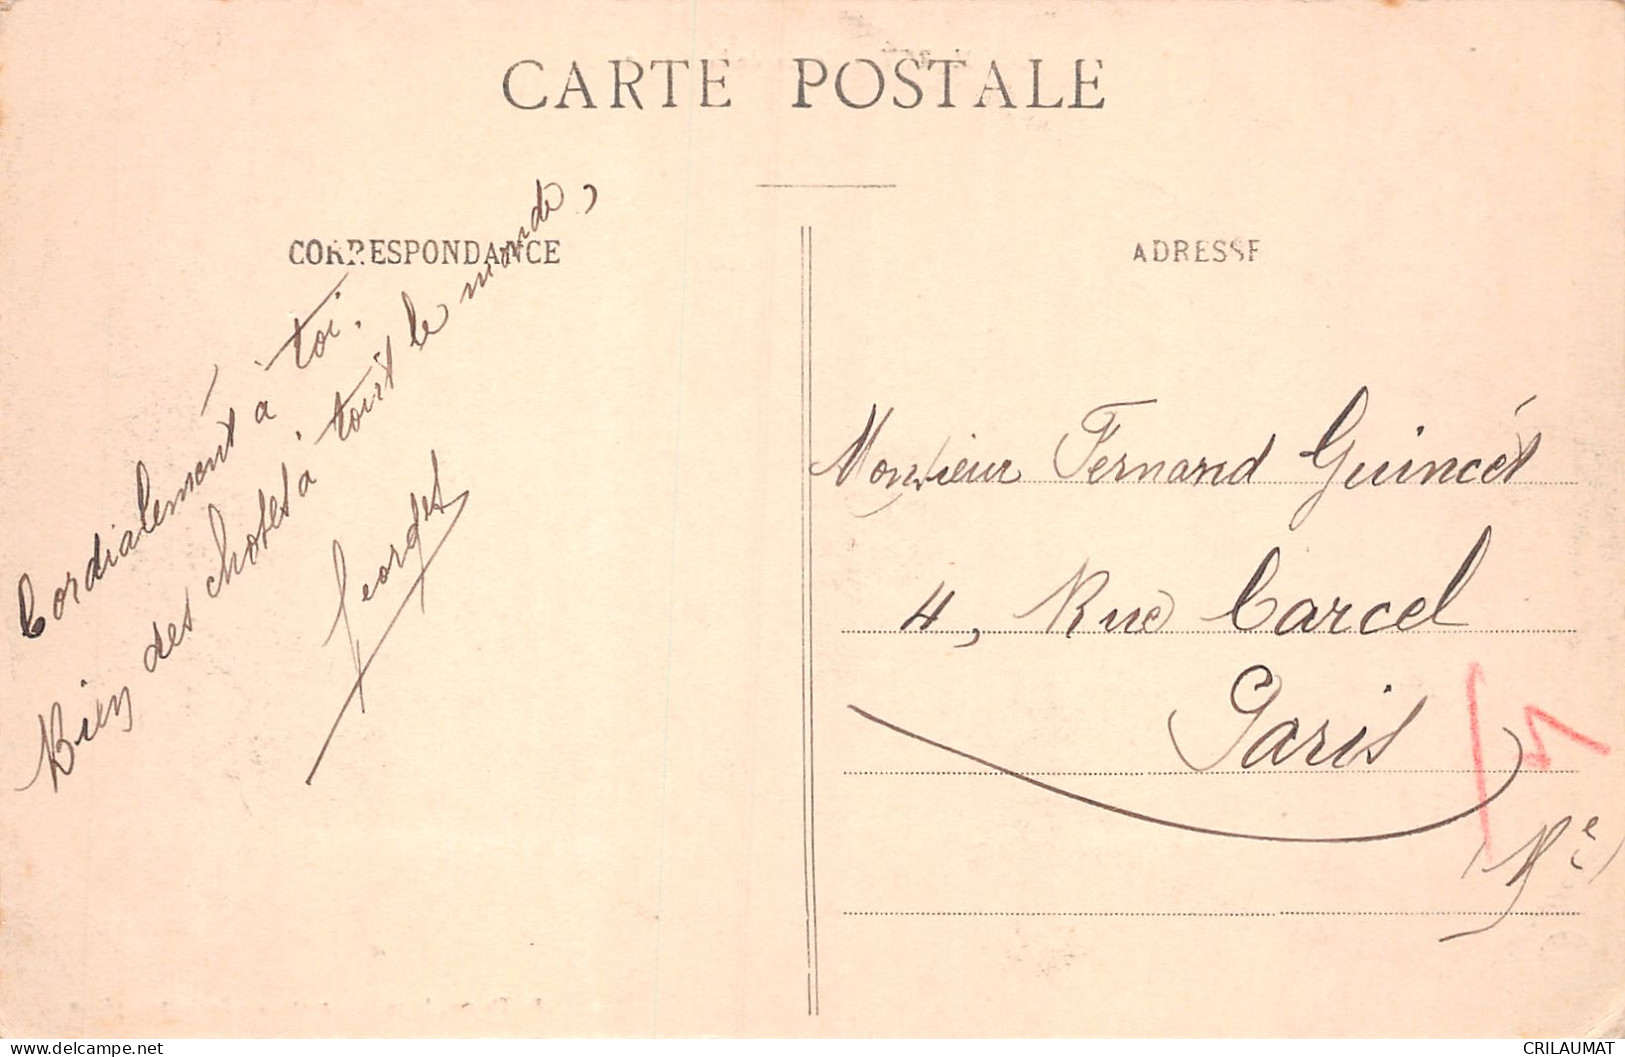 CARTE POSTALE
CORRESPONDANCE
ADRESSE
Cordialement à toi.
Bien des choses à tout le monde,
Georges
Monsieur Fernand Guincét
4, Rue Carcel
Paris
delcampe.net
CRILAUMAT